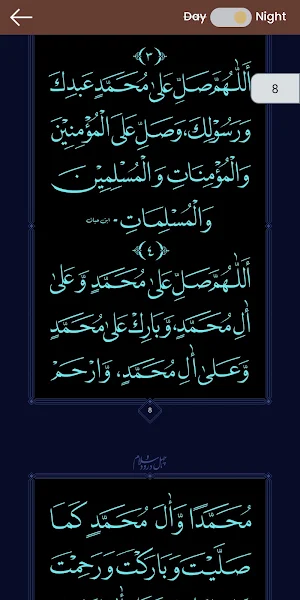 Day Night
﴿٣﴾
اَللّٰهُمَّ صَلِّ عَلٰى مُحَمَّدٍ عَبْدِكَ
8
وَرَسُوْلِكَ، وَصَلِّ عَلَى الْمُؤْمِنِيْنَ
وَالْمُؤْمِنَاتِ وَالْمُسْلِمِيْنَ
وَالْمُسْلِمَاتِ - ابن حبان
﴿٤﴾
اَللّٰهُمَّ صَلِّ عَلٰى مُحَمَّدٍ وَّعَلٰى
اٰلِ مُحَمَّدٍ، وَّبَارِكْ عَلٰى مُحَمَّدٍ
وَّعَلٰى اٰلِ مُحَمَّدٍ، وَّارْحَمْ
8
چہل درود و سلام
مُحَمَّدًا وَّاٰلَ مُحَمَّدٍ كَمَا
صَلَّيْتَ وَبَارَكْتَ وَرَحِمْتَ